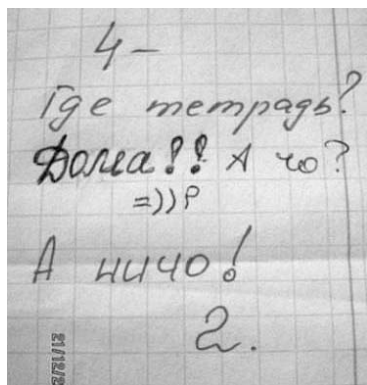 4-
Где тетрадь?
Дома!! А чо?
=)) P
А ничо!
2.